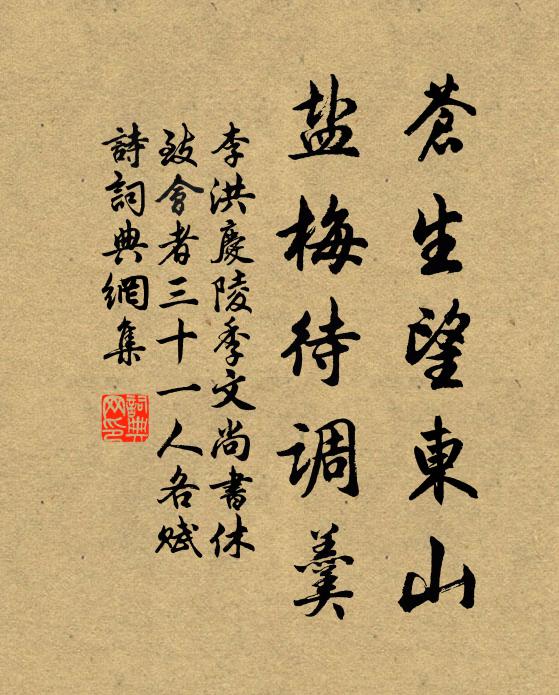 蒼生望東山
盐梅待調羹
李洪慶陵季文尚書休
致會者三十一人各賦
詩詞典網集
詞典
网印